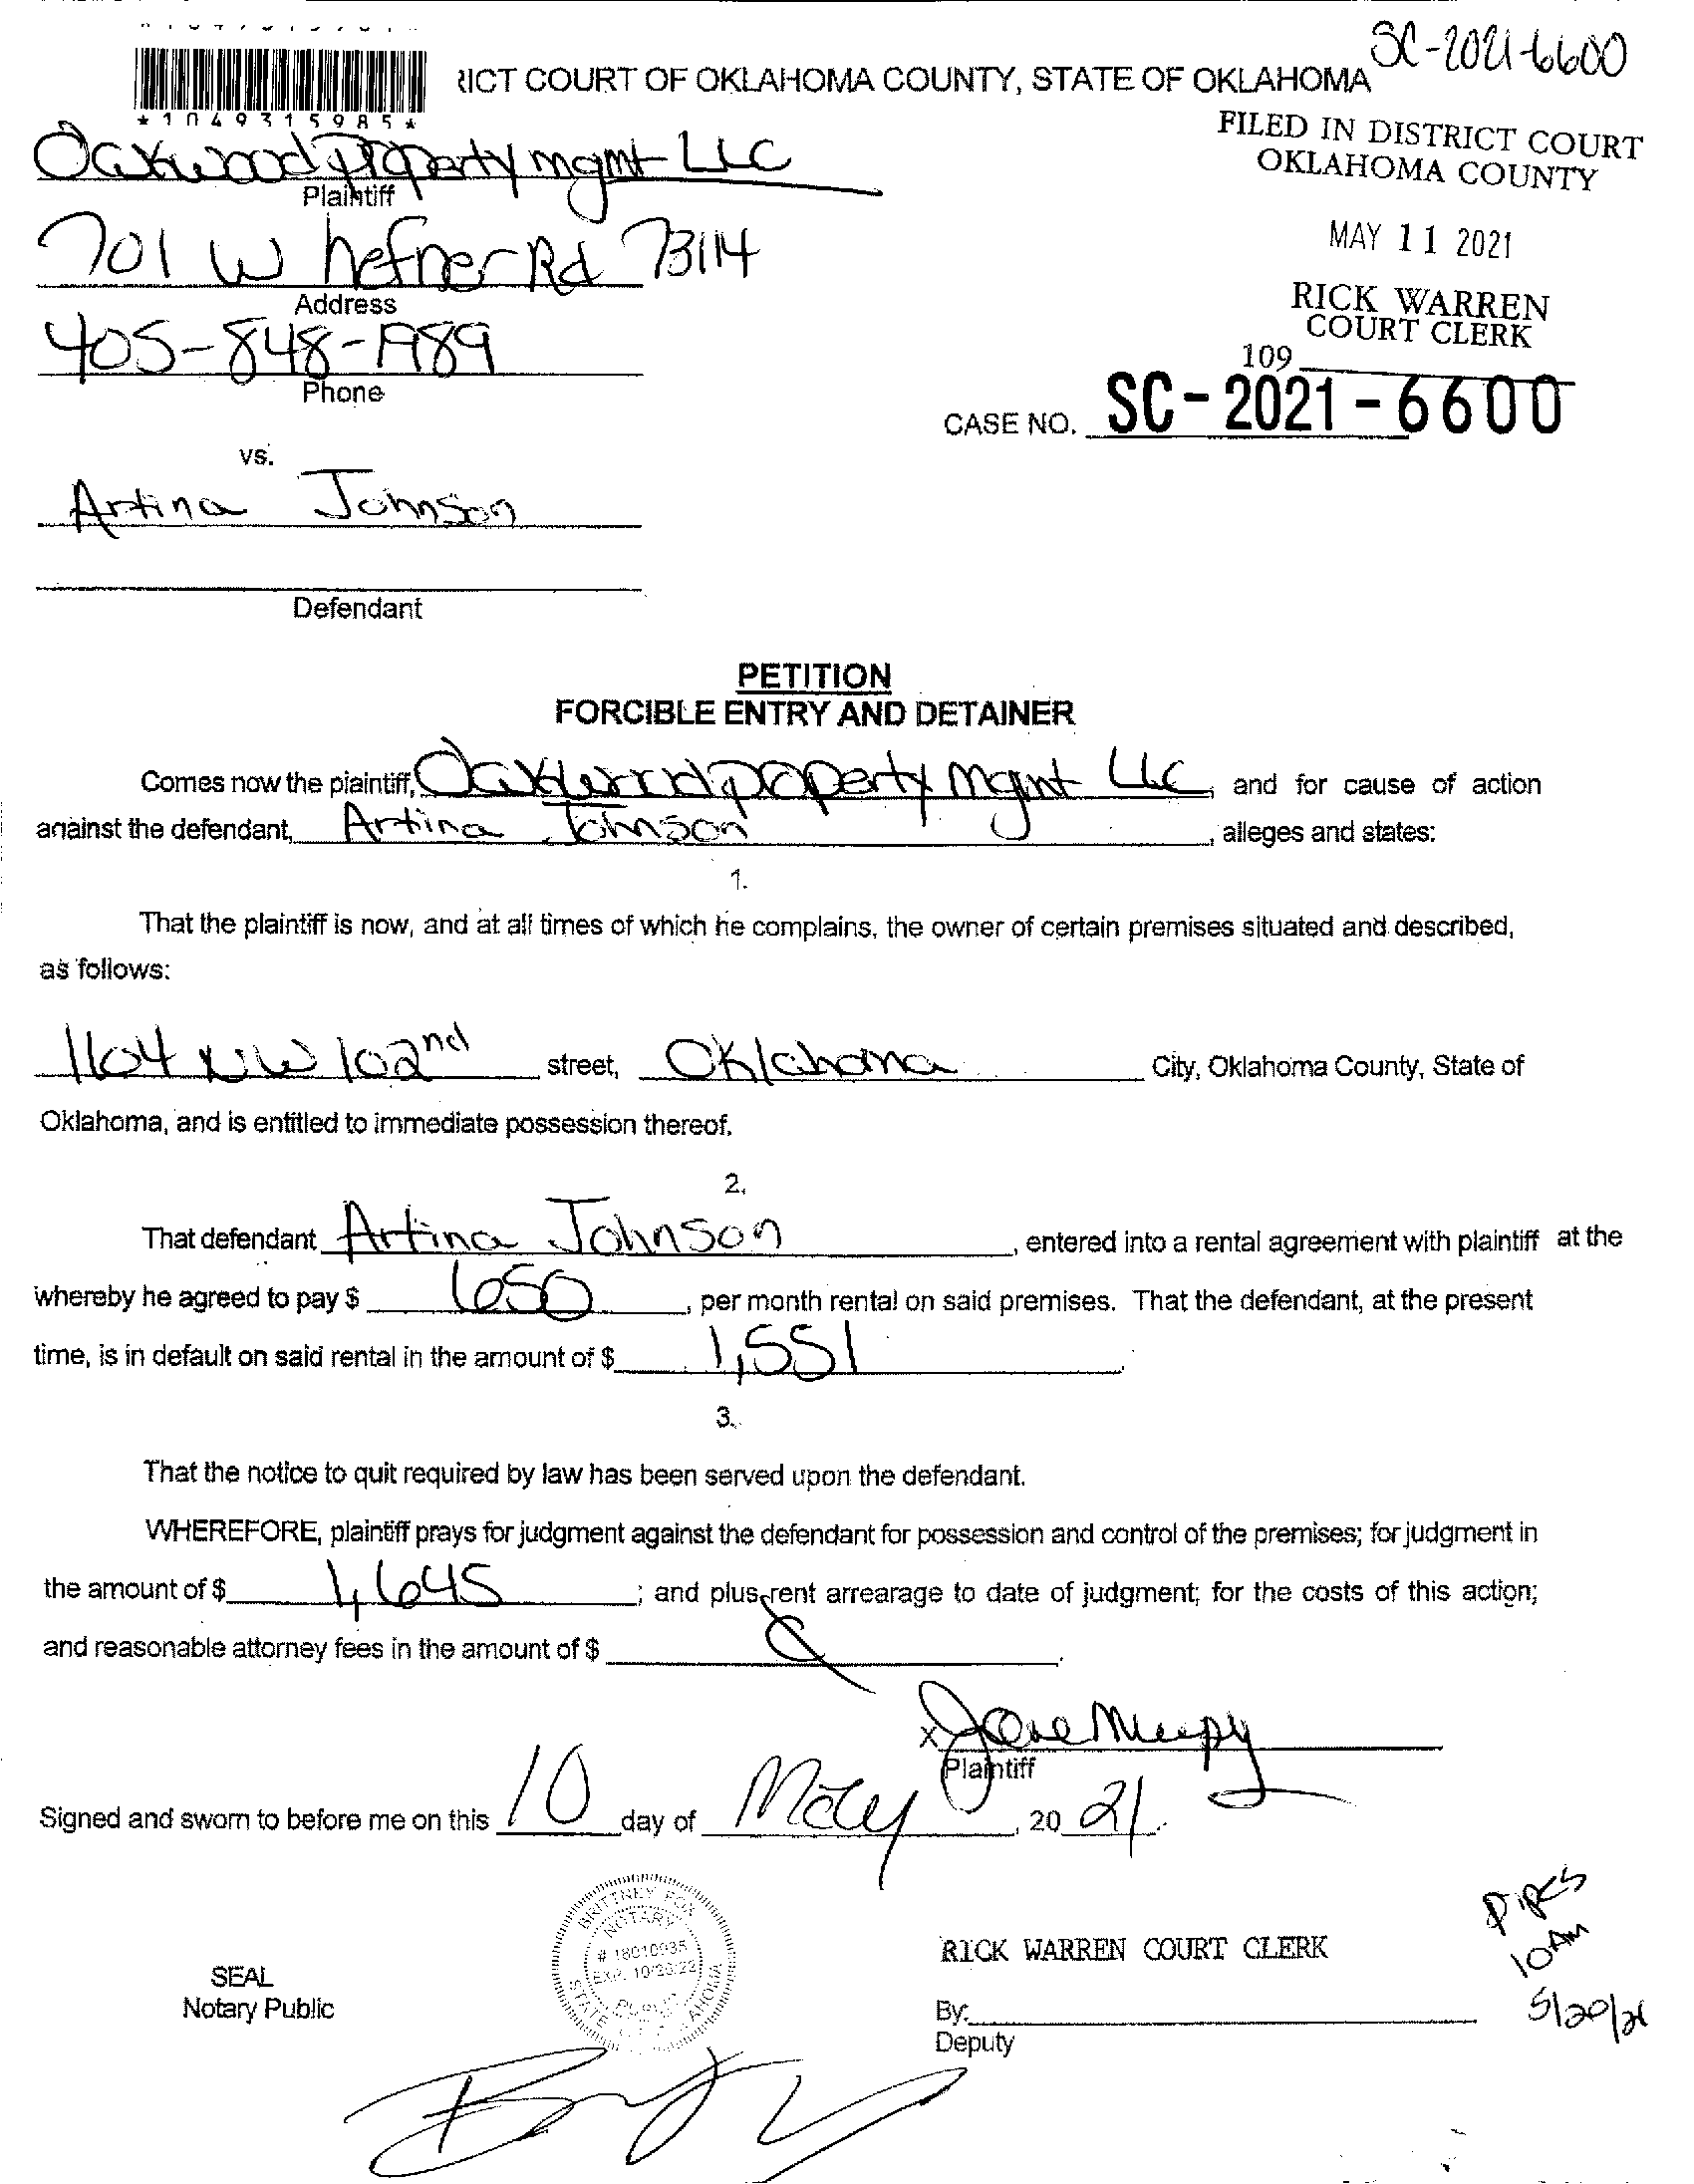 SC-2021-6600
RICT COURT OF OKLAHOMA COUNTY, STATE OF OKLAHOMA
*1049315985*
FILED IN DISTRICT COURT
OKLAHOMA COUNTY
Oakwood property mgmt LLC
Plaintiff
MAY 11 2021
701 W hefner Rd 73114
Address
RICK WARREN
COURT CLERK
405-848-1989
Phone
109
CASE NO. SC-2021-6600
vs.
Artina Johnson
Defendant
PETITION
FORCIBLE ENTRY AND DETAINER
Comes now the plaintiff, Oakwood property Mgmt LLC, and for cause of action
against the defendant, Artina Johnson, alleges and states:
1.
That the plaintiff is now, and at all times of which he complains, the owner of certain premises situated and described,
as follows:
1104 NW 102nd street, Oklahoma City, Oklahoma County, State of
Oklahoma, and is entitled to immediate possession thereof.
2.
That defendant Artina Johnson, entered into a rental agreement with plaintiff at the
whereby he agreed to pay $ 650, per month rental on said premises. That the defendant, at the present
time, is in default on said rental in the amount of $ 1,551.
3.
That the notice to quit required by law has been served upon the defendant.
WHEREFORE, plaintiff prays for judgment against the defendant for possession and control of the premises; for judgment in
the amount of $ 1,645; and plus rent arrearage to date of judgment; for the costs of this action;
and reasonable attorney fees in the amount of $
x
Plaintiff
Signed and sworn to before me on this 10 day of May, 20 21.
BRITTNEY FOX
NOTARY
# 18010935
EXP. 10/23/22
PUBLIC
STATE OF OKLAHOMA
SEAL
Notary Public
RICK WARREN COURT CLERK
By:
Deputy
10AM
5/20/21